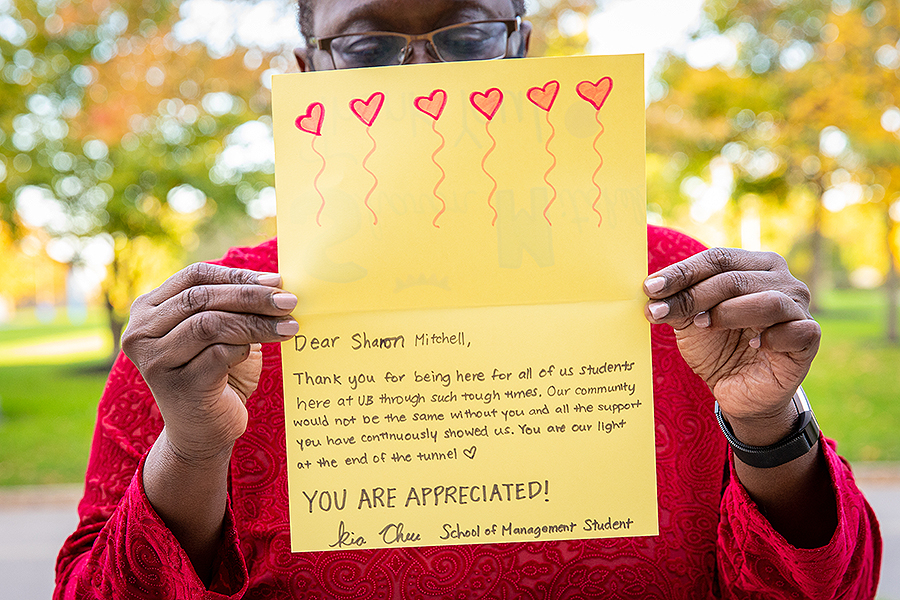 Dear Sharon Mitchell,
Thank you for being here for all of us students
here at UB through such tough times. Our community
would not be the same without you and all the support
you have continuously showed us. You are our light
at the end of the tunnel ♡
YOU ARE APPRECIATED!
School of Management Student